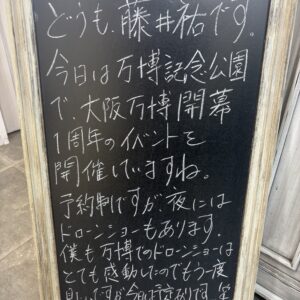 どうも、藤井祐です。
今日は万博記念公園
で、大阪万博開幕
1周年のイベントを
開催していますね。
予約制ですが夜には
ドローンショーもあります。
僕も万博でのドローンショーは
とても感動したのでもう一度
見たいですが今は